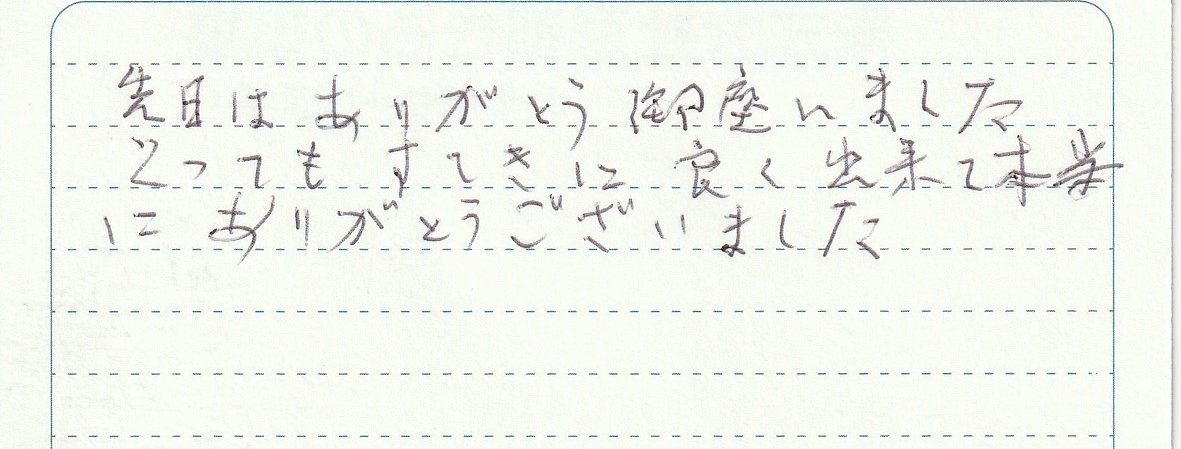 先日は ありがとう御座いました
とっても すてきに 良く 出来て本当
に ありがとうございました